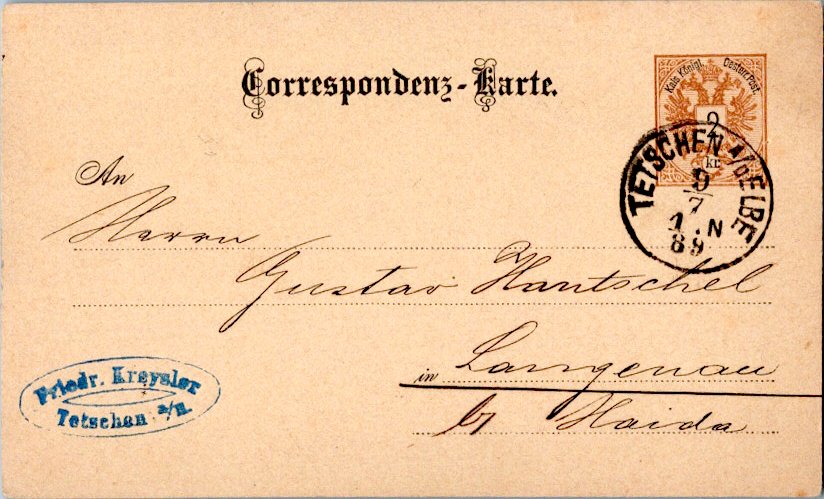 Correspondenz-Karte.
Kais. Königl. Oesterr. Post.
2
kr.
TETSCHEN A/D ELBE
9
7
1.N
89
An
Herrn
Gustav Hantschel
in Langenau
b/ Haida
Friedr. Kreysler
Tetschen a/E.